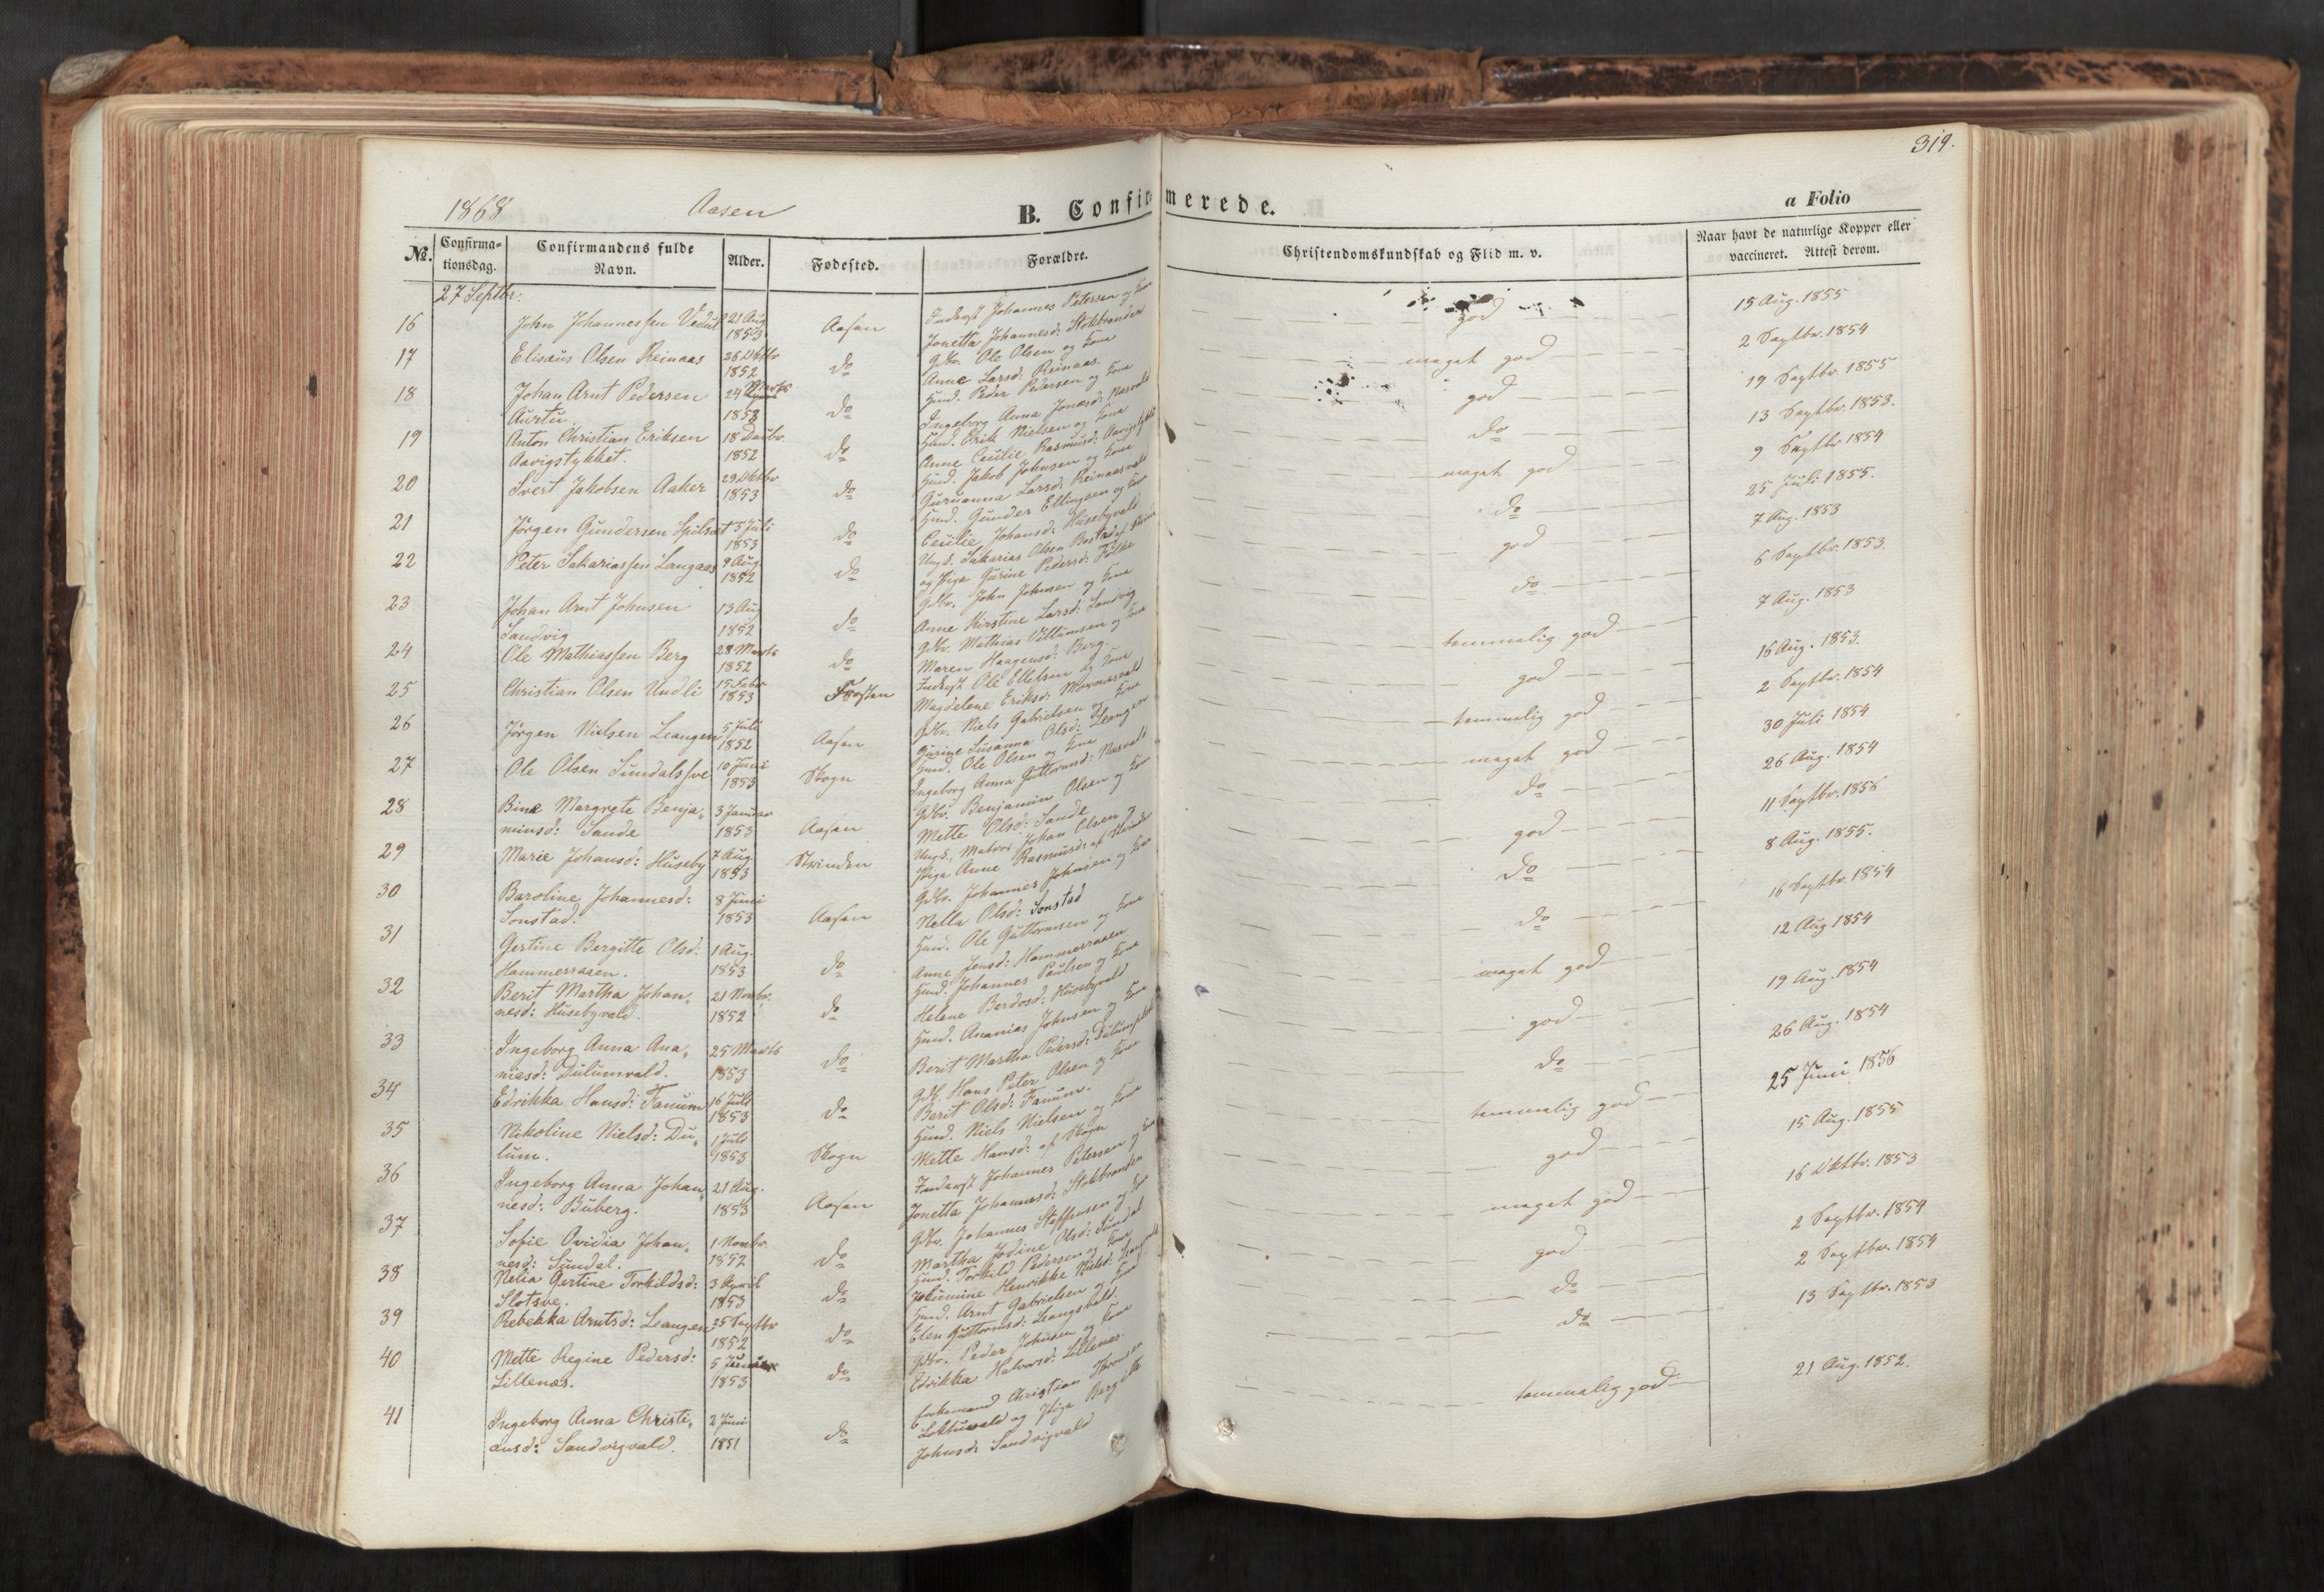 319.
1868 Aasen B. Confirmerede. a Folio
№. Confirma-tionsdag. Confirmandens fulde Navn. Alder. Fødested. Forældre. Christendomskundskab og Flid m. v. Naar havt de naturlige Kopper eller vaccineret. Attest derom.
27 Septbr.
16 John Johannessen Vedul 21 Aug Aasen Inderst Johannes Petersen og Kone god 15 Aug. 1855
1853 Jonetta Johannesd: Stokbranden
17 Elisæus Olsen Reinaas 26 Oktbr do Gdbr. Ole Olsen og Kone meget god 2 Septbr. 1854
1852 Anne Larsd: Reinaas.
18 Johan Arnt Pedersen 24 Marts do Husd. Peder Pedersen og Kone god 19 Septbr. 1855
Aurtu. 1853 Ingeborg Anna Jonasd: Næsvald
19 Anton Christian Eriksen 18 Decbr. do Husd. Erik Nielsen og Kone do 13 Septbr. 1853.
Aavigstykket. 1852 Anne Cecilie Rasmusd: Aavigstykket
20 Svert Jakobsen Aaker 29 Oktbr do Husd. Jakob Johnsen og Kone meget god 9 Septbr 1854
1853 Guruanna Larsd: Reinaasvald
21 Jörgen Gundersen Spilset 5 Juli do Husd. Gunder Ellingsen og Kone do 25 Juli 1855.
1853 Cecilie Johansd: Husebyvald
22 Peter Sakariassen Langaas 9 Aug do Ungk. Sakarias Olsen Bastad af god 7 Aug. 1853
1852 og Pige Gurine Pedersd: Følke
23 Johan Arnt Johnsen 13 Aug do Gdbr. John Johnsen og Kone do 6 Septbr. 1853.
Sandvig 1852 Anne Kirstine Larsd: Sandvig
24 Ole Mathiassen Berg 28 Marts do Gdbr. Mathias Villumsen og Kone temmelig god 7 Aug. 1853
1852 Maren Haagensd: Berg
25 Christian Olsen Undli 15 Febr Frosten Inderst Ole Ellefsen og Kone god 16 Aug. 1853.
1853 Magdelene Eriksd:
26 Jörgen Nielsen Leangen 5 Juli Aasen Gdbr. Niels Gabrielsen og Kone temmelig god 2 Septbr. 1854
1852 Gurine Susanna Olsd: Leangen
27 Ole Olsen Sundalssve 10 Juni Skogn Husd. Ole Olsen og Kone meget god 30 Juli 1854
1853 Ingeborg Anna Guttormsd: Næsvald
28 Bine Margrete Benja- 3 Januar Aasen Gdbr. Benjamin Olsen og Kone do 26 Aug. 1854
minsd: Sande 1853 Mette Olsd: Sande
29 Marie Johansd: Huseby 7 Aug. Strinden Ungk. Matros Johan Olsen og god 11 Septbr. 1856
1853 Pige Anne Rasmusd: af Strinden
30 Baroline Johannesd: 8 Juni Aasen Gdbr. Johannes Johnsen og Kone do 8 Aug. 1855.
Sonstad. 1853 Nella Olsd: Sonstad
31 Gertine Bergitte Olsd: 1 Aug. do Husd. Ole Guttormsen og Kone do 16 Septbr. 1854
Hammerraaen. 1853 Anne Jensd: Hammerraaen
32 Berit Martha Johan- 21 Novbr. do Husd. Johannes Paulsen og Kone meget god 12 Aug 1854
nesd: Husebyvald. 1852 Helene Berdosd: Husebyvald
33 Ingeborg Anna Ana- 25 Marts do Husd. Ananias Johnsen og Kone god 19 Aug. 1854
niasd: Dulumvald. 1853 Berit Martha Pedersd:
34 Edrikka Hansd: Fanum 16 Juli do Gdb. Hans Peter Olsen og Kone do 26 Aug. 1854
1853 Berit Olsd: Fanum.
35 Nikoline Nielsd: Du- 1 Juli Skogn Husd. Niels Nielsen og Kone temmelig god 25 Juni 1856
lum. 1853 Mette Hansd: af Skogn
36 Ingeborg Anna Johan- 21 Aug. Aasen Inderst Johannes Petersen og Kone god 15 Aug. 1855
nesd: Buberg. 1853 Jonetta Johannesd: Stokbranden
37 Sofie Ovidia Johan- 1 Novbr. do Gdbr. Johannes Steffensen og Kone meget god 16 Oktbr. 1853
nesd: Sundal. 1852 Martha Jodine Olsd: Sundal
38 Nelia Gertine Torkildsd: 3 April do Husd. Torkild Pedersen og Kone god 2 Septbr. 1854
Slotsve. 1853 Jokumine Henrikke Nielsd:
39 Rebekka Arntsd: Leangen 25 Septbr do Husd. Arnt Gabrielsen og Kone do 2 Septbr. 1854
1852 Elen Guttormsd: Leangsvald.
40 Mette Regine Pedersd: 5 Januar do Gdbr. Peder Johnsen og Kone do 13 Septbr. 1853
Lillenæs. 1853 Edrikka Halvorsd: Lillenæs.
41 Ingeborg Anna Christi- 2 Juni do Enkemand Christian temmelig god 21 Aug. 1852.
ansd: Sandvigvald. 1851 Loktuvald og Pige Bergitte
Johnsd: Sandvigvald